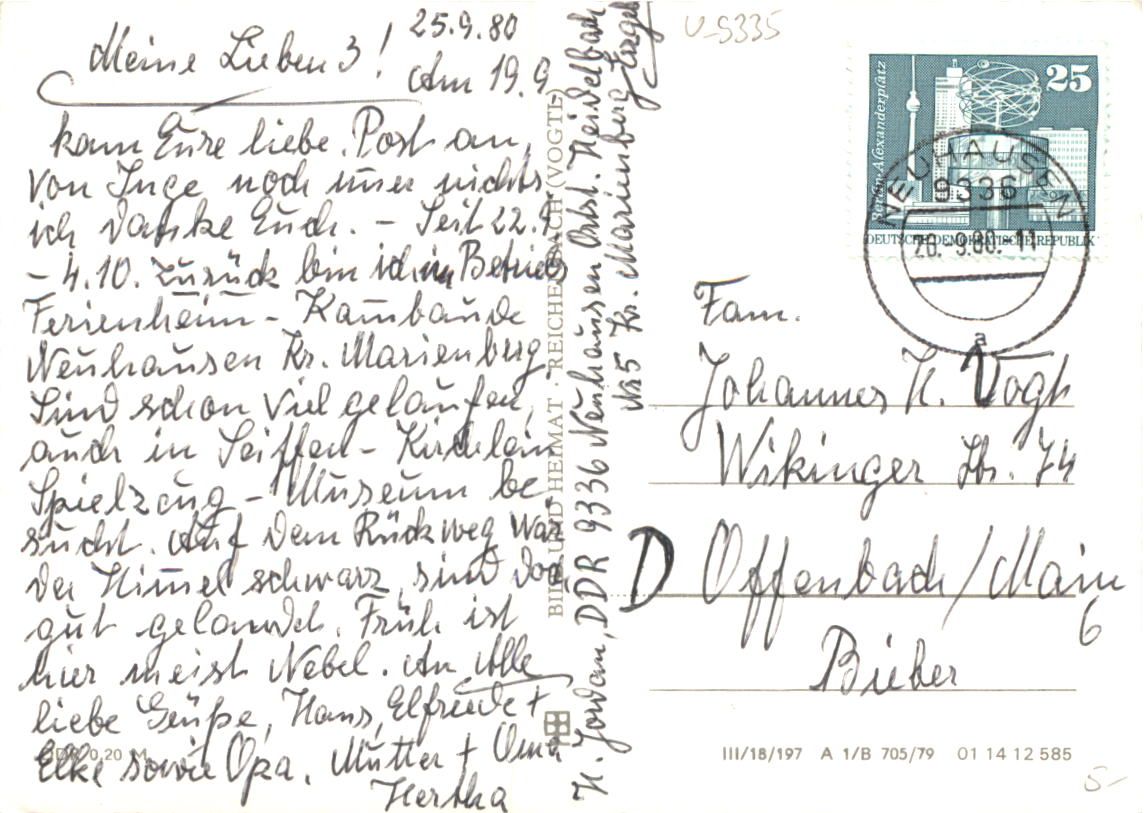 25.9.80
Meine Lieben 3!
Am 19.9.
kam Eure liebe Post an,
von Inge noch immer nichts
ich danke Euch. – Seit 22.9
– 4.10. zurück bin ich im Betriebs
Ferienheim – Kambaude
Neuhausen Kr. Marienberg
Sind schon viel gelaufen,
auch in Seiffen – Kirchlein
Spielzeug – Museum be
sucht. Auf dem Rückweg war
der Himmel schwarz, sind doch
gut gelandet. Früh ist
hier meist Nebel. An Alle
liebe Grüße, Hans, Elfriede +
Elke sowie Opa, Mutter + Oma
Hertha
DDR 0,20 M
BILD UND HEIMAT · REICHENBACH (VOGTL)
H. Jordan, DDR 9336 Neuhausen Ortst. Heidelbach
No 5 Kr. Marienberg Erzgeb
U-9335
Berlin-Alexanderplatz
25
DEUTSCHE DEMOKRATISCHE REPUBLIK
NEUHAUSEN
9336
26. 9.80. 11
a
Fam.
Johannes H. Vogt
Wikinger Str. 74
D Offenbach/Main
6
Bieber
III/18/197 A 1/B 705/79 01 14 12 585
5-